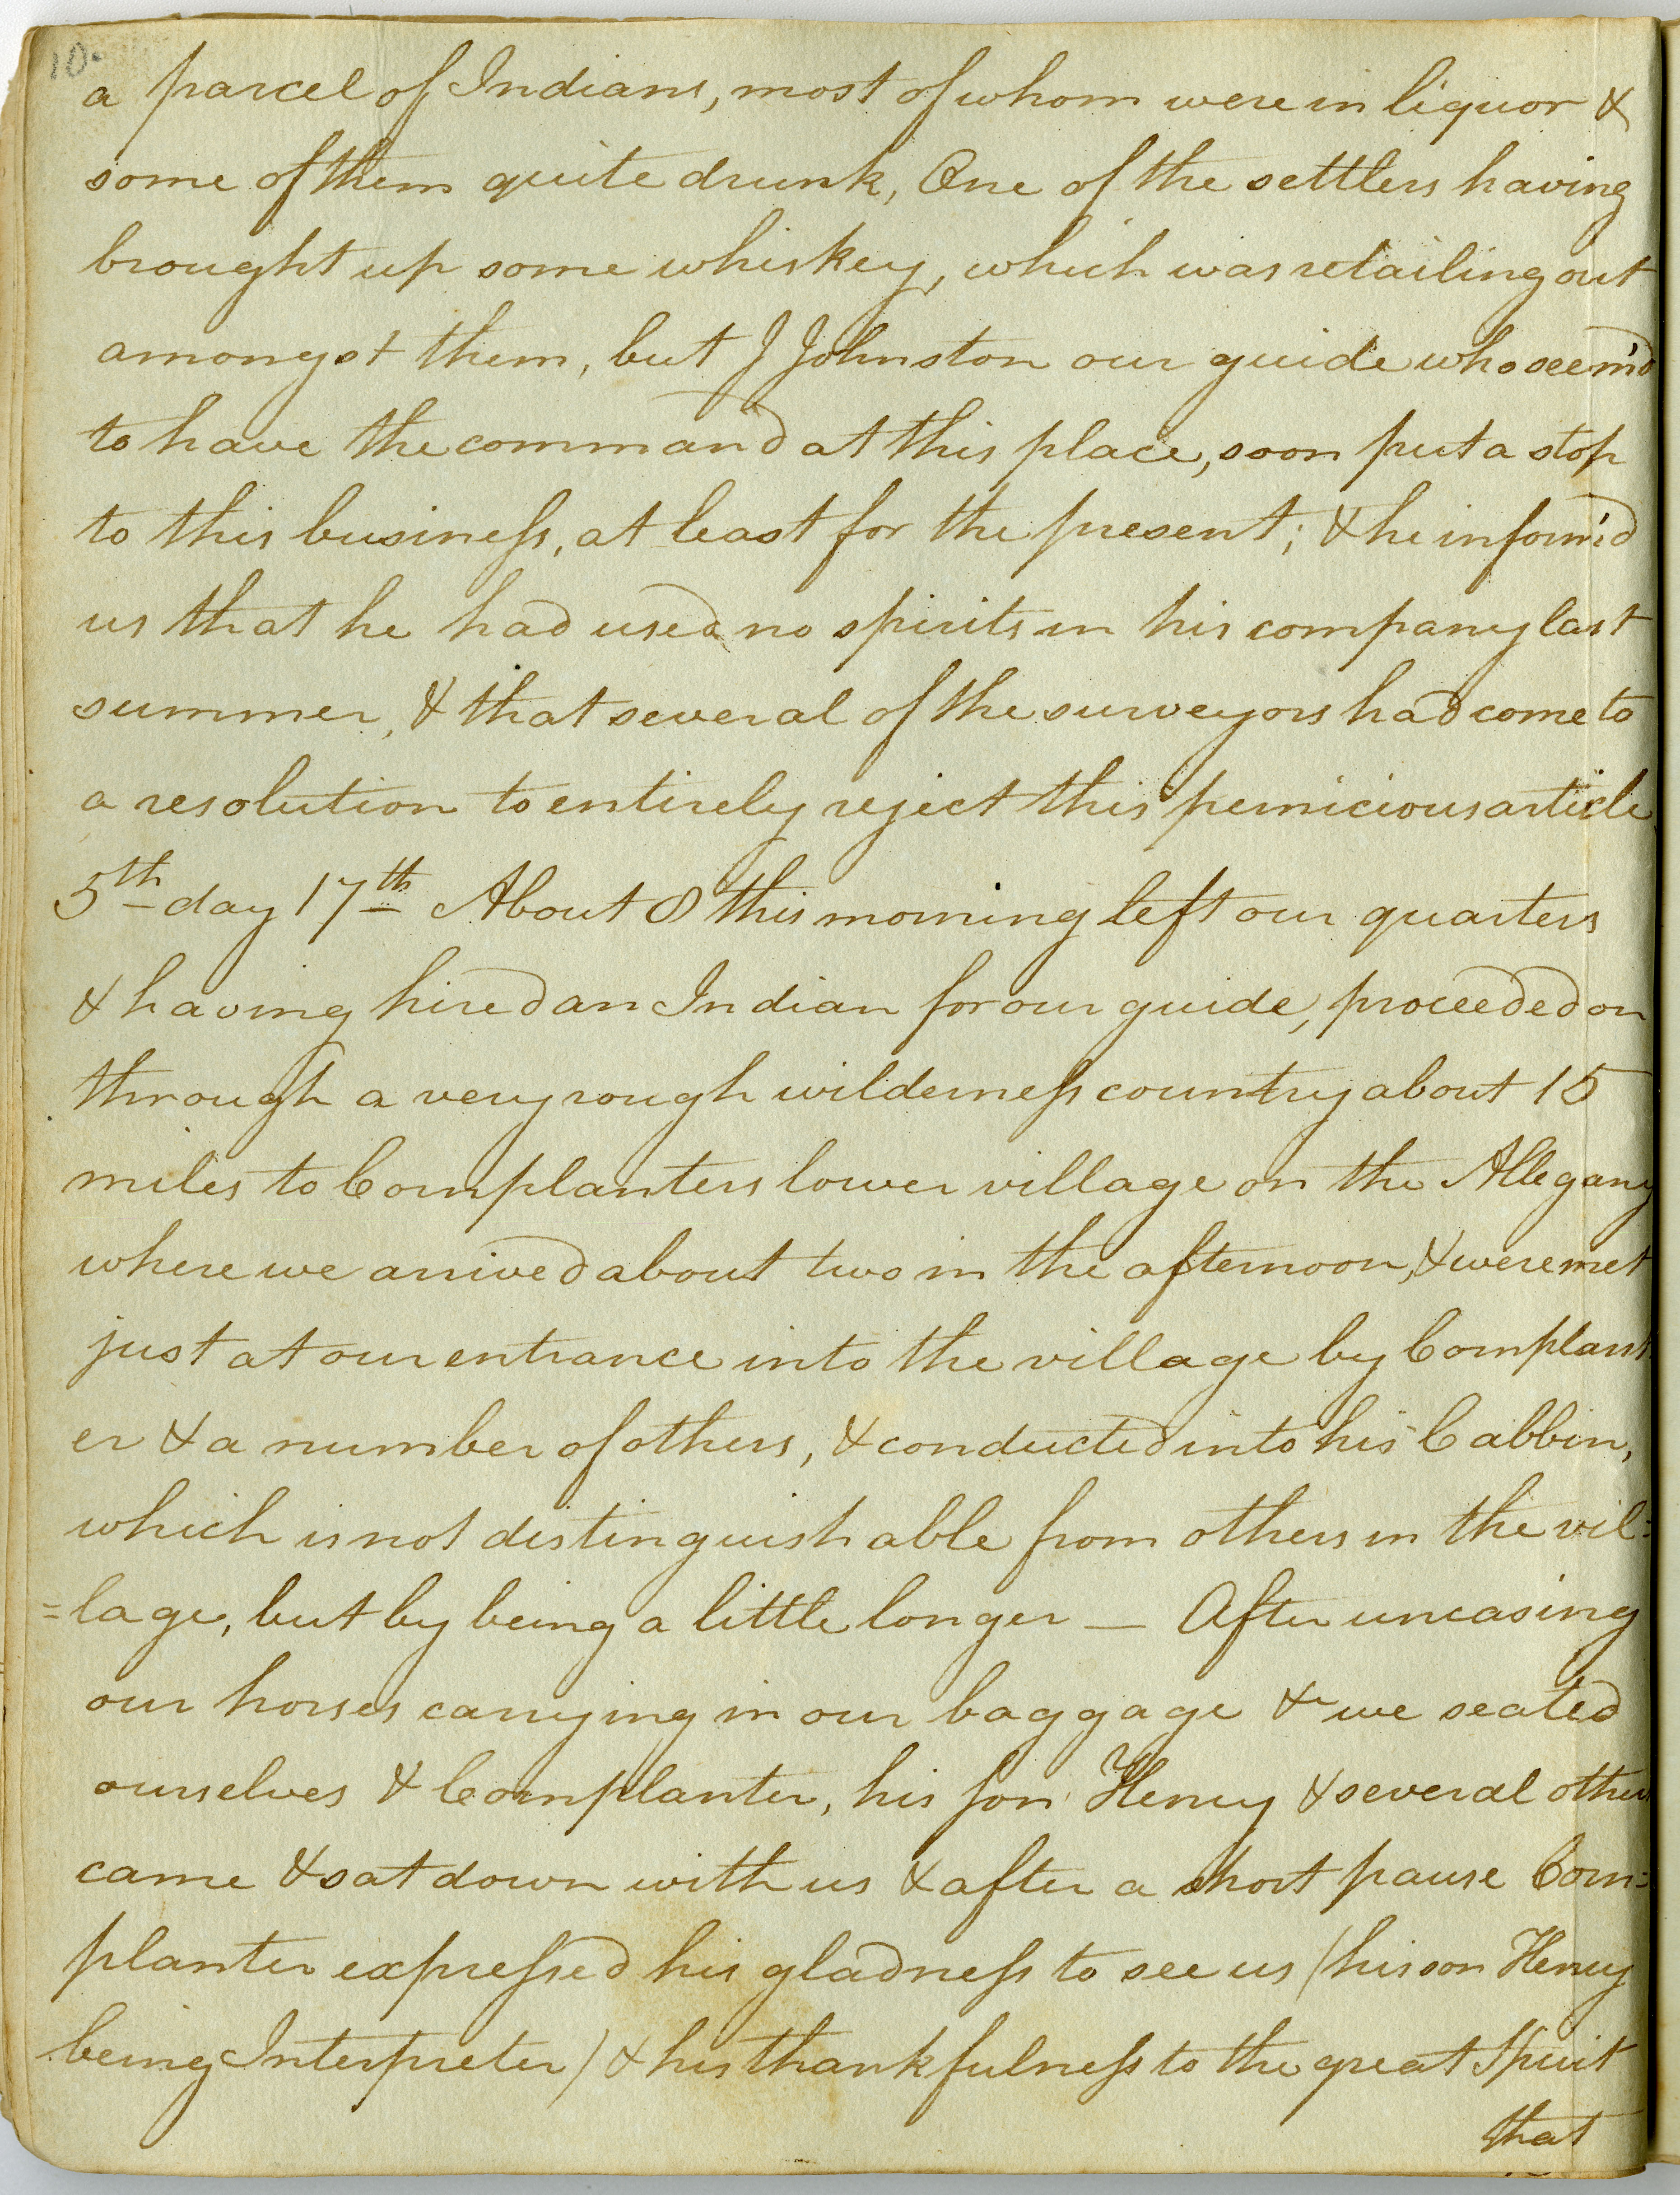 10.
a parcel of Indians, most of whom were in liquor &
some of them quite drunk, One of the settlers having
brought up some whiskey, which was retailing out
amongst them, but J Johnston our guide who seem'd
to have the command at this place, soon put a stop
to this business, at least for the present; & he inform'd
us that he had used no spirits in his company last
summer, & that several of the surveyors had come to
a resolution to entirely reject this pernicious article
5th day 17th About 8 this morning left our quarters
& having hired an Indian for our guide, proceeded on
through a very rough wilderness country about 15
miles to Cornplanters lower village on the Allegany
where we arrived about two in the afternoon, & were met
just at our entrance into the village by Cornplant
er & a number of others, & conducted into his Cabbin,
which is not distinguishable from others in the vil=
=lage, but by being a little longer — After uncasing
our horses carrying in our baggage & we seated
ourselves & Cornplanter, his son Henry & several other
came & sat down with us & after a short pause Corn=
planter expressed his gladness to see us (his son Henry
being Interpreter) & his thankfulness to the great Spirit
that